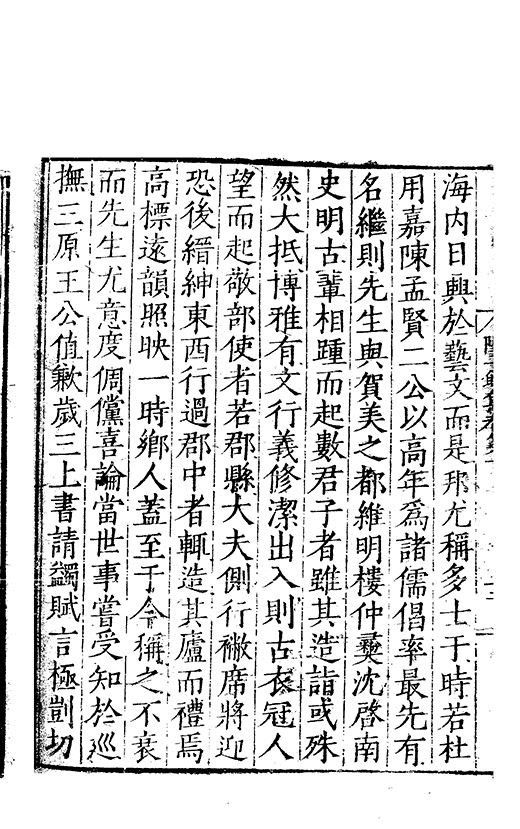 海内日興於藝文而是邦尤稱多士于時若杜
用嘉陳孟賢二公以高年為諸儒倡率最先有
名繼則先生與賀美之都維明樓仲彛沈啓南
史明古輩相踵而起數君子者雖其造詣或殊
然大抵博雅有文行義修潔出入則古衣冠人
望而起敬部使者若郡縣大夫側行襒席將迎
恐後縉紳東西行過郡中者輒造其廬而禮焉
高標遠韻照映一時鄉人蓋至于今稱之不衰
而先生尤意度倜儻喜論當世事嘗受知於廵
撫三原王公值歉歲三上書請蠲賦言極剴切